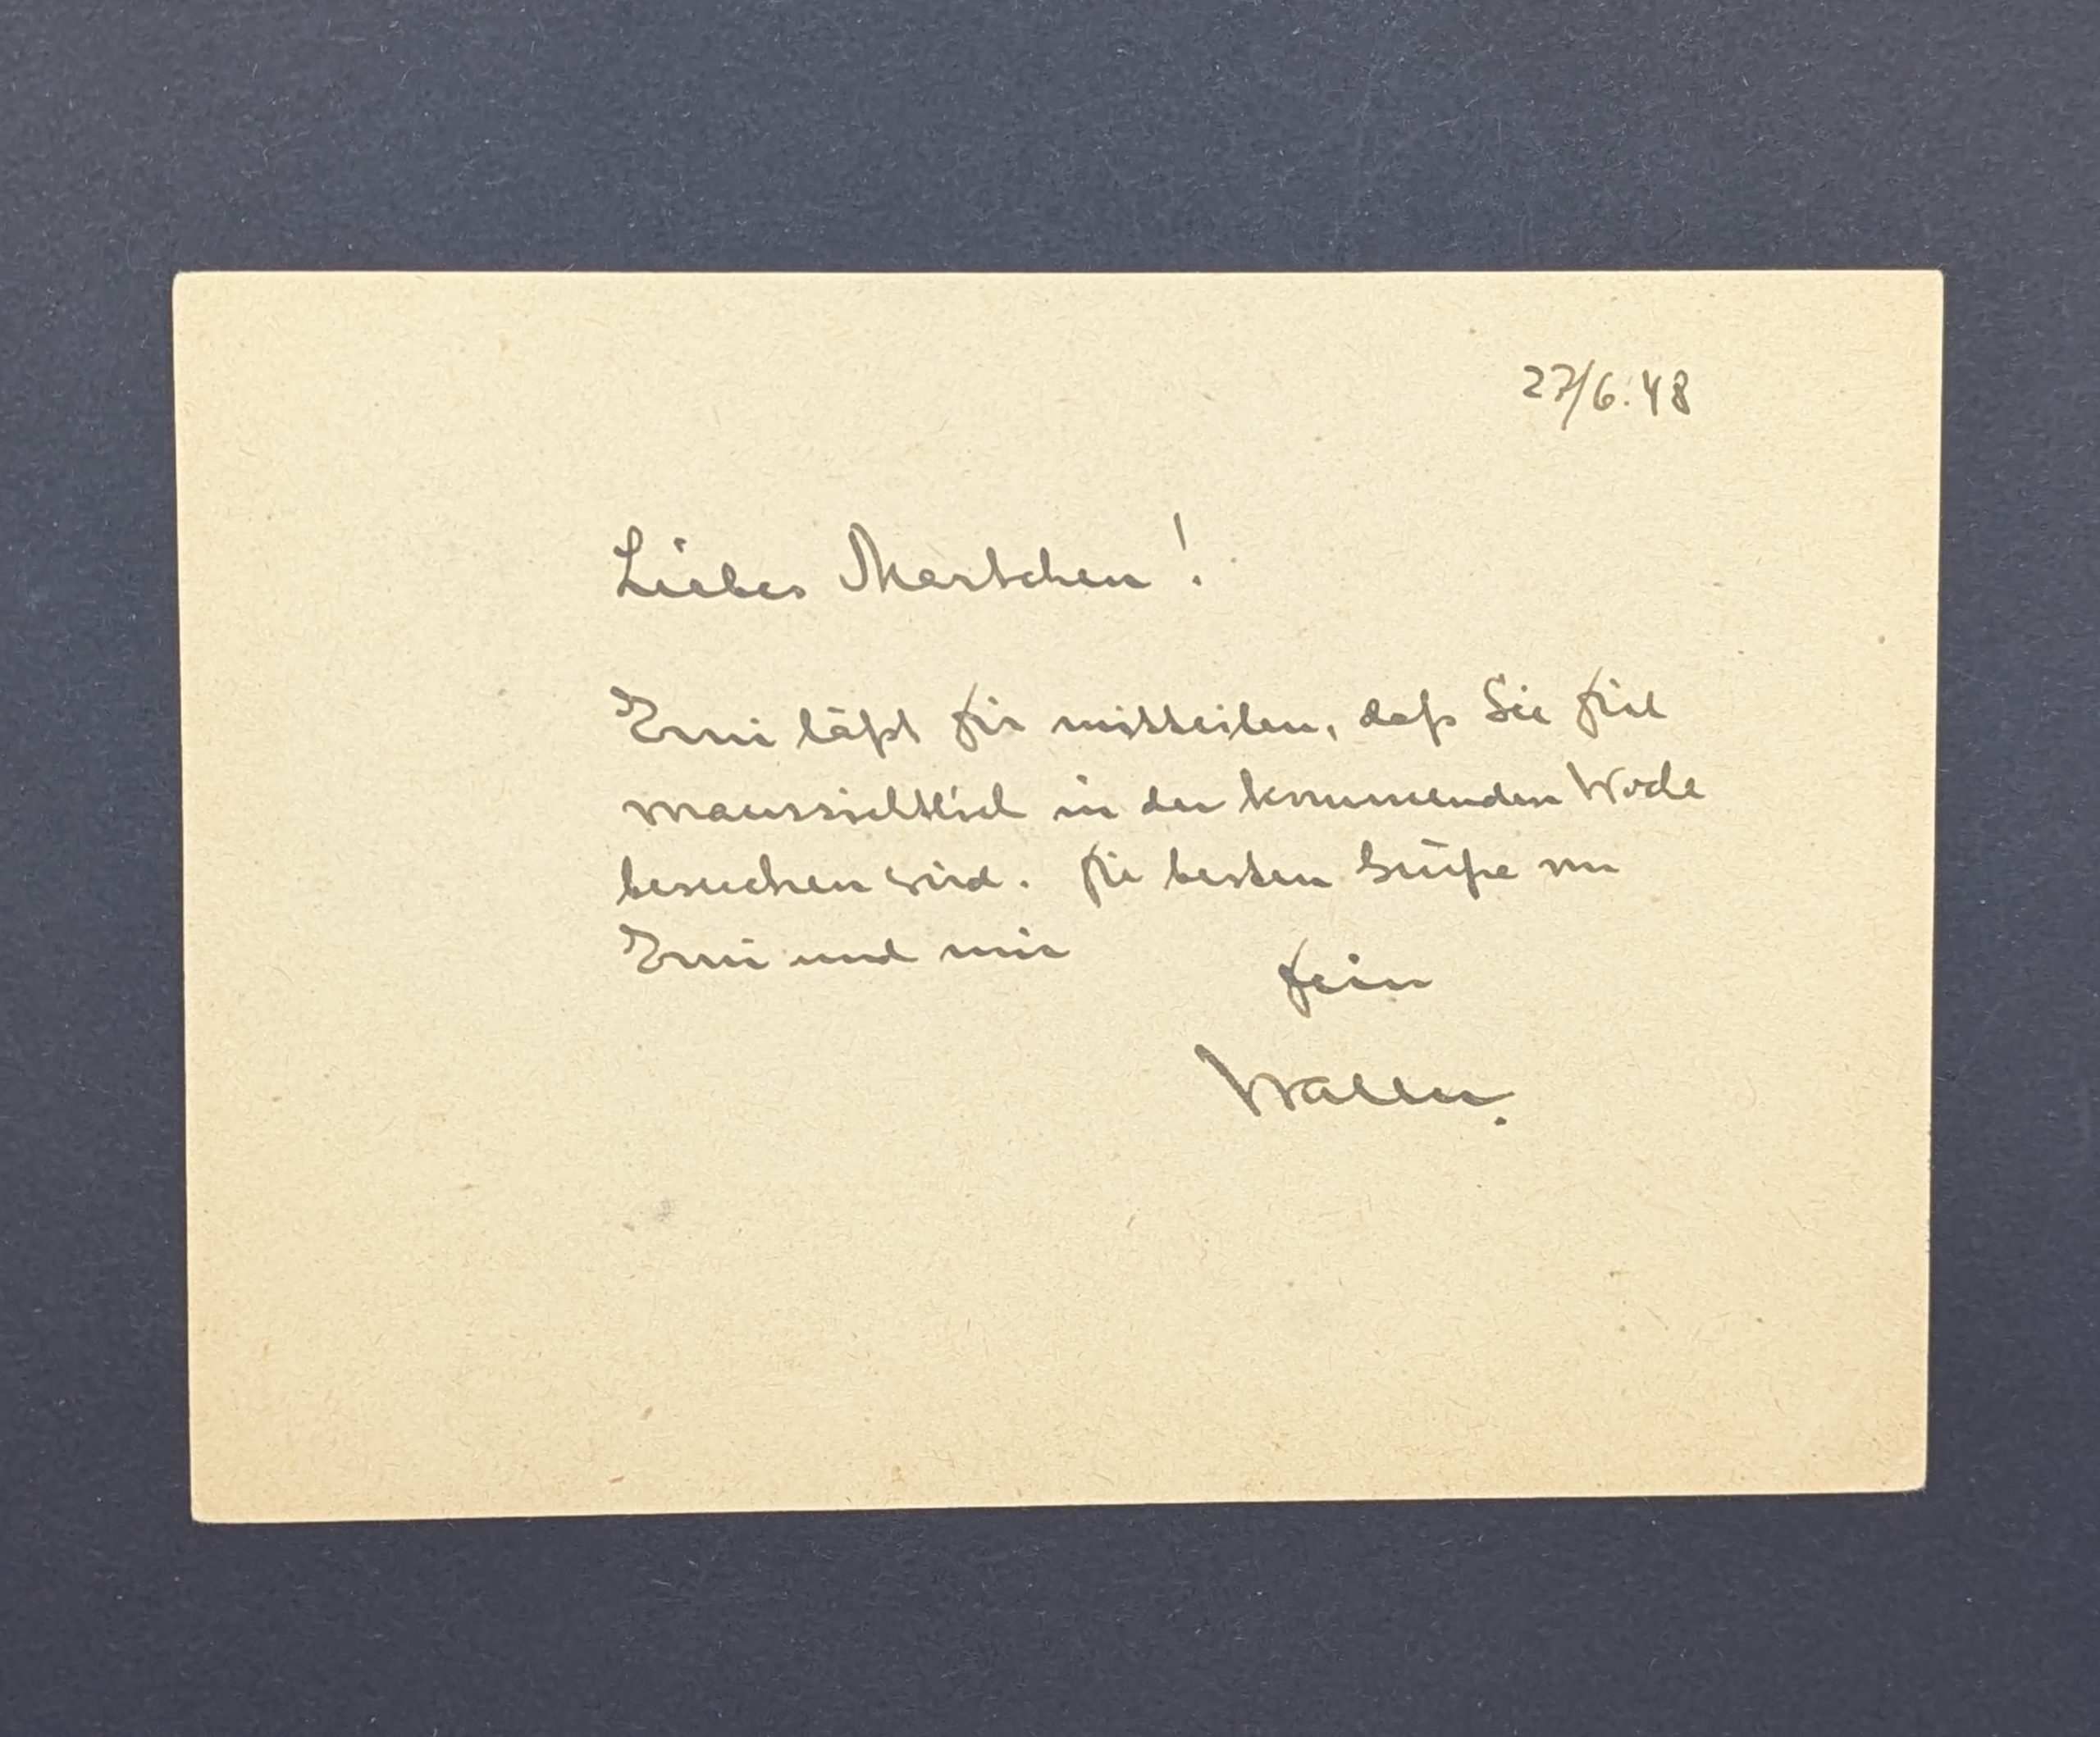 27/6.48
Liebes Martchen!
Erni läßt Dir mitteilen, daß Sie Dich
voraussichtlich in der kommenden Woche
besuchen wird. Die besten Grüße von
Erni und mir
Dein